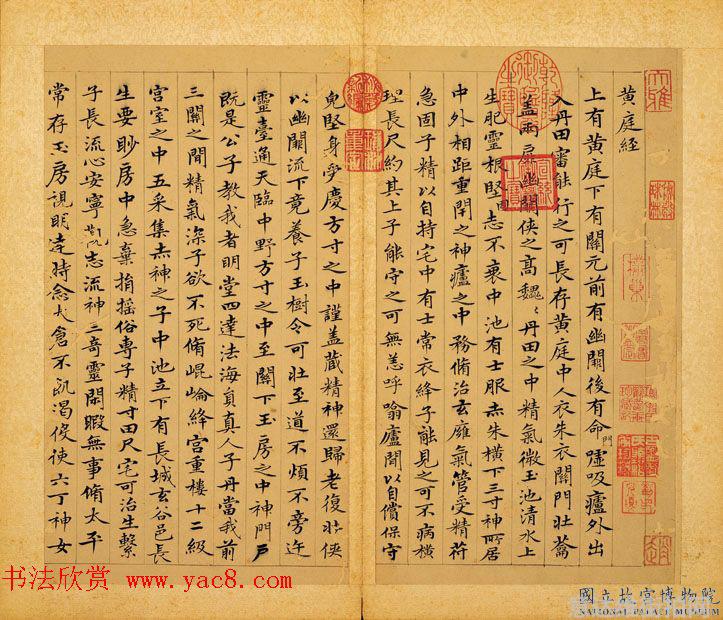 黄庭経
上有黄庭下有關元前有幽闕後有命門噓吸廬外出
入丹田審能行之可長存黄庭中人衣朱衣關門壯蘥
盖兩扉幽闕俠之髙巍〻丹田之中精氣微玉池清水上
生肥靈根堅固志不衰中池有士服赤朱橫下三寸神所居
中外相距重閇之神廬之中務脩治玄廱氣管受精符
急固子精以自持宅中有士常衣絳子能見之可不病橫
理長尺約其上子能守之可無恙呼噏廬閒以自償保守
皃堅身受慶方寸之中謹盖蔵精神還歸老復壯俠
以幽闕流下竟養子玉樹令可壯至道不煩不旁迕
靈臺通天臨中野方寸之中至關下玉房之中神門戶
既是公子教我者明堂四達法海負真人子丹當我前
三關之閒精氣深子欲不死脩崐崘絳宮重樓十二級
宮室之中五采集赤神之子中池立下有長城玄谷邑長
生要眇房中急棄捐搖俗專子精寸田尺宅可治生繫
子長流心安寧觀志流神三奇靈閑暇無事脩太平
常存玉房視明達時念大倉不飢渴役使六丁神女
书法欣赏 www.yac8.com
國立故宮博物院
NATIONAL PALACE MUSEUM